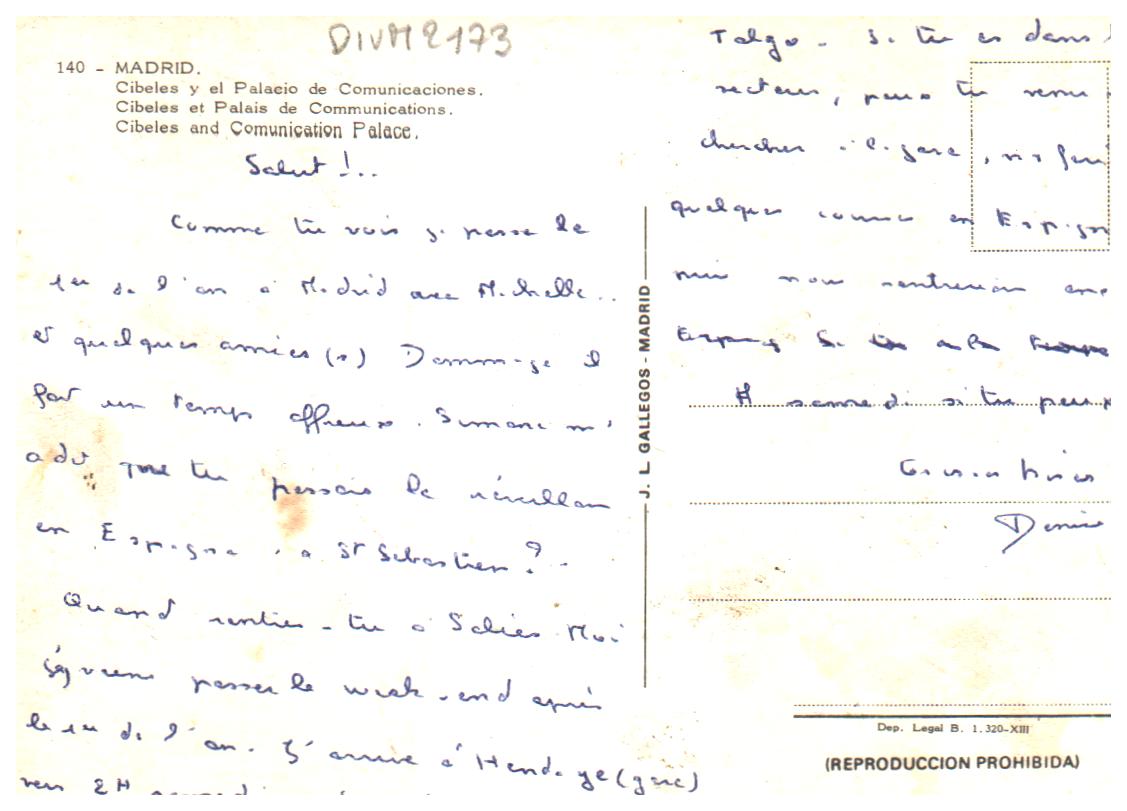 DIVM2173
140 - MADRID.
Cibeles y el Palacio de Comunicaciones.
Cibeles et Palais de Communications.
Cibeles and Comunication Palace.
Salut !..
Comme tu vois je passe le
1er de l'an à Madrid avec Michelle..
et quelques amies(s) Dommage il
fait un temps affreux. Simone m'
a dit que tu passais le réveillon
en Espagne à St Sébastien ?
Quand rentres-tu à Salies. Moi
j'y viens passer le week-end après
le 1er de l'an. J'arrive à Hendaye (gare)
vers 2H
Talgo. Si tu es dans
secteur, peux tu venir
chercher à la gare,
quelques courses en Espagn
puis nous rentrerions
A samedi si tu peux
Grosses bises
Denise
J. L. GALLEGOS - MADRID
Dep. Legal B. 1.320-XIII
(REPRODUCCION PROHIBIDA)